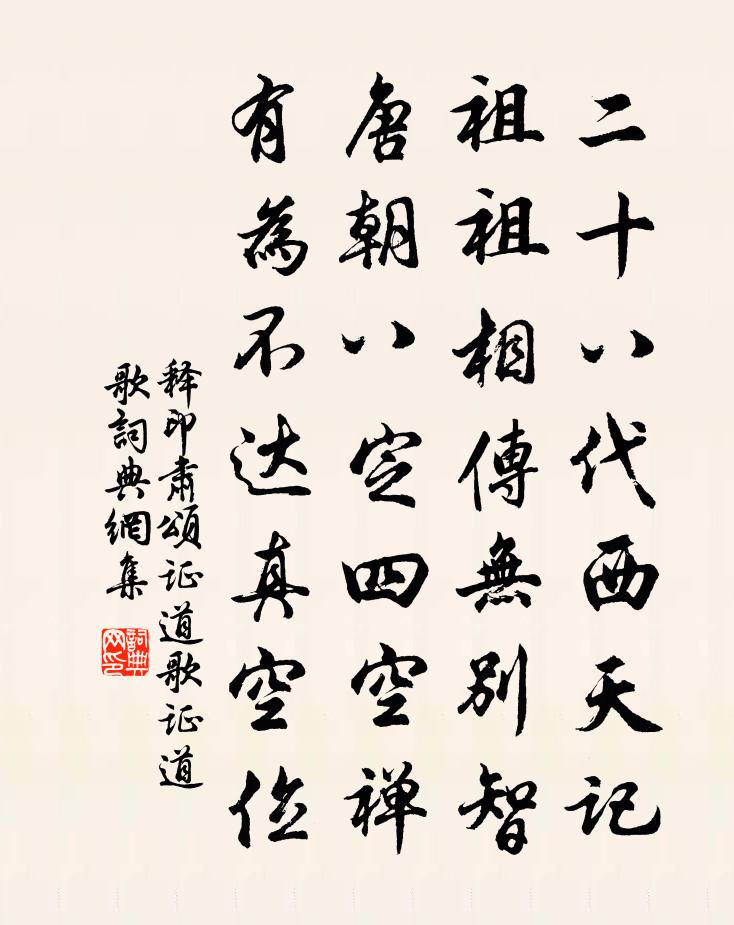 二十八代西天记
祖祖相傳無別智
唐朝八定四空禅
有為不达真空俭
释印肃頌证道歌证道
歌詞典網集
詞典网印